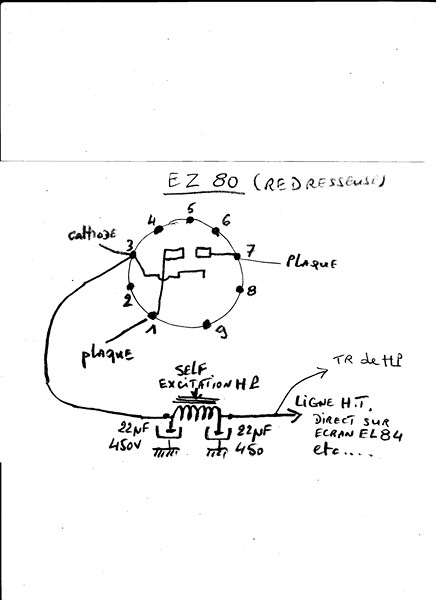 EZ 80 (REDRESSEUSE)
5
4
6
cathode
3
7
PLAQUE
2
8
1
9
plaque
SELF
EXCITATION HP
TR de HP
LIGNE H.T.
DIRECT SUR
ECRAN EL84
etc....
22µF
450V
22µF
450